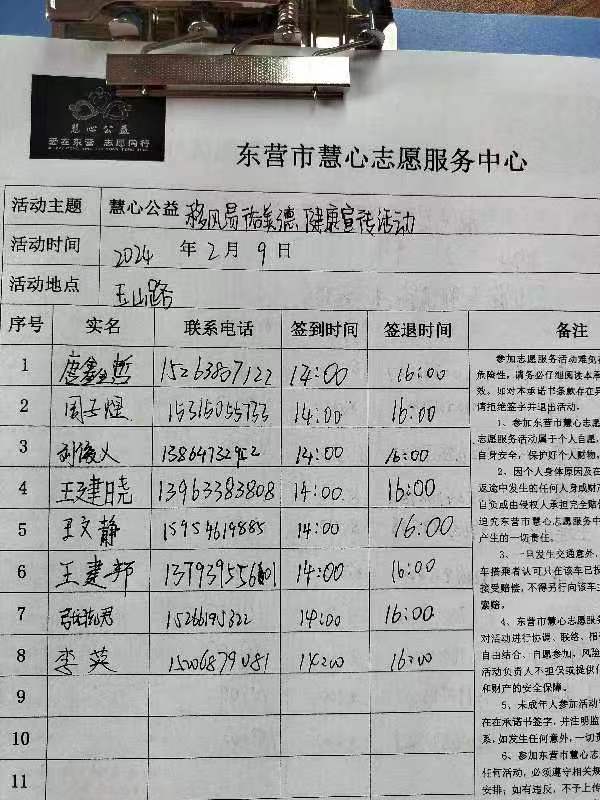 慧心公益
爱在东营 志愿同行
东营市慧心志愿服务中心
活动主题 慧心公益 移风易俗美德健康宣传活动
活动时间 2024年2月9日
活动地点 玉山路
序号 实名 联系电话 签到时间 签退时间 备注
1 唐鑫哲 15263807122 14:00 16:00
2 周子煜 14:00 16:00
3 刘俊人 14:00 16:00
4 王建晓 13963383808 14:00 16:00
5 王文静 15954619885 14:00 16:00
6 王建邦 14:00 16:00
7 15266195322 14:00 16:00
8 李英 15006879081 14:00 16:00
9
10
11
参加志愿服务活动难免有
危险性，请务必仔细阅读本承
效。如对本承诺书条款存在异
请拒绝签字并退出活动。
1、参加东营市慧心志愿
志愿服务活动属于个人自愿，
自身安全，保护好个人财物，
2、因个人身体原因及在
返途中发生的任何人身或财产
自负或由侵权人承担完全赔偿
追究东营市慧心志愿服务中
产生的一切责任。
3、一旦发生交通意外，
车搭乘者认可只在该车已投
接受赔偿，不得另行向该车主
索赔。
4、东营市慧心志愿服务
对活动进行协调、联络、相
自由结合、自愿参加，风险
活动负责人不担保或提供任
和财产的安全保障。
5、未成年人参加活动
在在承诺书签字，并注明监
系，如发生任何意外，一切责
6、参加东营市慧心志愿
任何活动，必须遵守相关规
安排；如有违反，不予上传